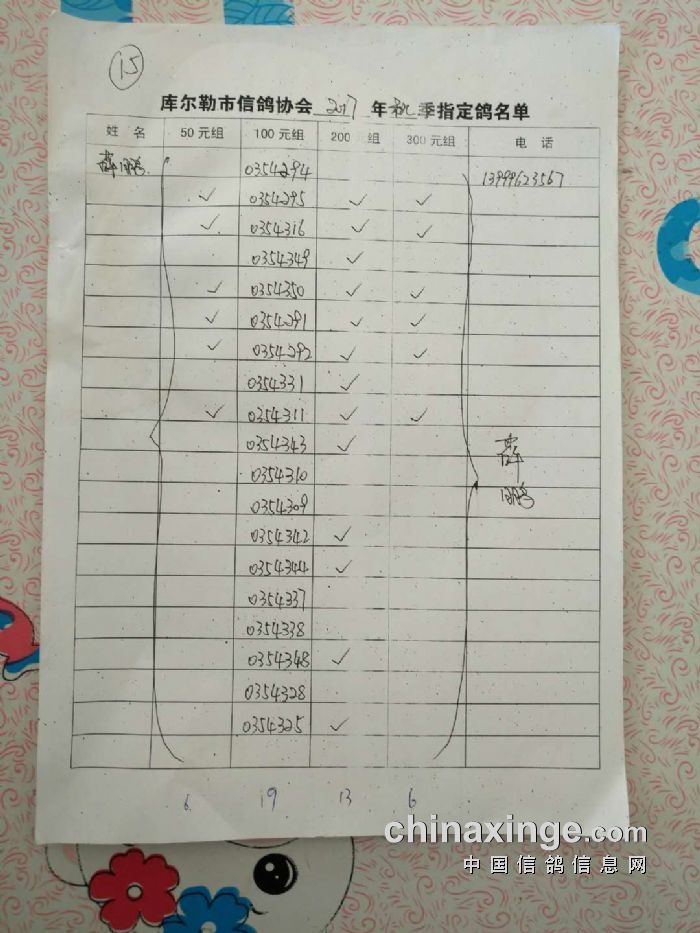 15
库尔勒市信鸽协会 2017 年 秋 季指定鸽名单
姓 名 50元组 100元组 200 组 300元组 电 话
薛鹏 0354294 13999623567
✓ 0354295 ✓ ✓
✓ 0354316 ✓ ✓
0354349 ✓
✓ 0354350 ✓ ✓
✓ 0354291 ✓ ✓
✓ 0354292 ✓ ✓
0354331 ✓
✓ 0354311 ✓ ✓
0354343 ✓
0354310
0354309
0354342 ✓
0354344 ✓
0354337
0354338
0354348 ✓
0354328
0354325 ✓
薛
鹏
6 19 13 6
chinaxinge.com
中国信鸽信息网